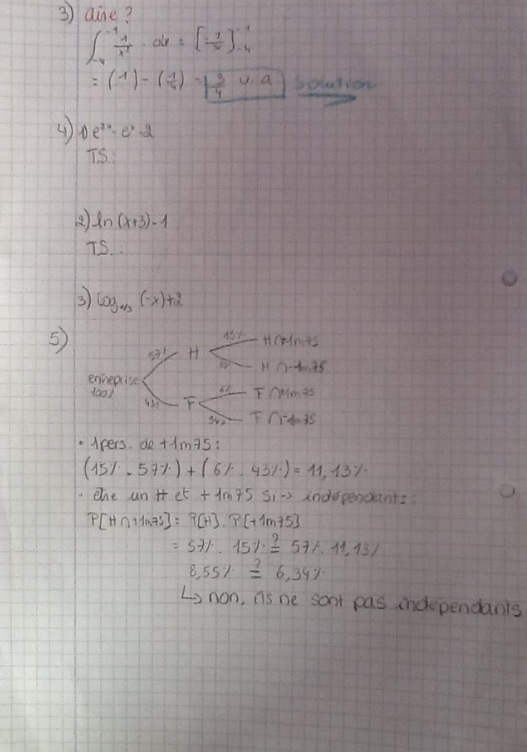 3) aire ?
∫₋₄⁻¹ 1/x² · dx = [-1/x]₋₄⁻¹
= (1) - (1/4) = 3/4 u.a Solution
4) 1) e²ˣ - eˣ - 2
TS :
2) ln(x+3) - 1
TS :
3) log (-x)+2
5)
57% H 15% H∩+1m75
H∩-1m75
entreprise
100%
43% F 6% F∩+1m75
94% F∩-1m75
• 1 pers. de +1m75 :
(15% . 57%) + (6% . 43%) = 11,13%
• être un H et +1m75 si → indépendants :
P[H∩+1m75] = P[H] . P[+1m75]
= 57% . 15% ≟ 57% . 11,13%
8,55% ≟ 6,34%
↳ non, ils ne sont pas indépendants